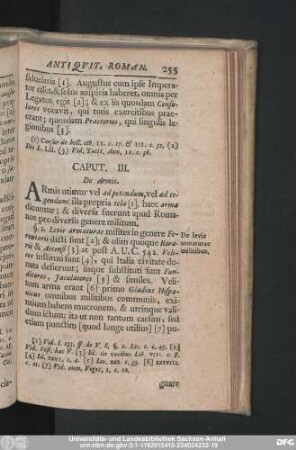 ANTIQVIT. ROMAN. 255
salutaris [1]. Augustus cum ipse Impera-
tor esset, & solus auspicia haberet, omnia per
Legatos egit [2]; & ex iis quosdam Consu-
lares vocavit, qui totis exercitibus prae-
erant; quosdam Praetorios, qui singulis le-
gionibus [3].
(1) Caesar de bell. civ. II. c. 17. & III. c. 51. (2)
Dio L. LII. (3) Vid. Tacit. Ann. II. c. 36.
CAPUT. III.
De Armis.
ARmis utimur vel ad petendum, vel ad te-
gendum: illa propria tela [1], haec arma
dicuntur; & diversa fuerunt apud Roma-
nos pro diverso genere militum.
§. 1. Levis armaturae milites in genere Fe-
rentarii dicti sunt [2]; & olim quoque Rora-
rii & Accensi [3]: at post A. U. C. 542. Velites
instituti sunt [4], qui Italia civitate do-
nata desierunt; inque substituti sunt Fun-
ditores, Jaculatores [5] & similes. Velitum
arma erant [6] primo Gladius Hispa-
niensis omnibus militibus communis, exi-
mium habens mucronem, & utrinque vali-
dum ictum; ita ut non tantum caesim, sed
etiam punctim [quod longe utilius] [7] pu-
De levis
armaturae
militibus,
gnare
Universitäts- und Landesbibliothek Sachsen-Anhalt
urn:nbn:de:gbv:3:1-1192015415-234024232-19
DFG